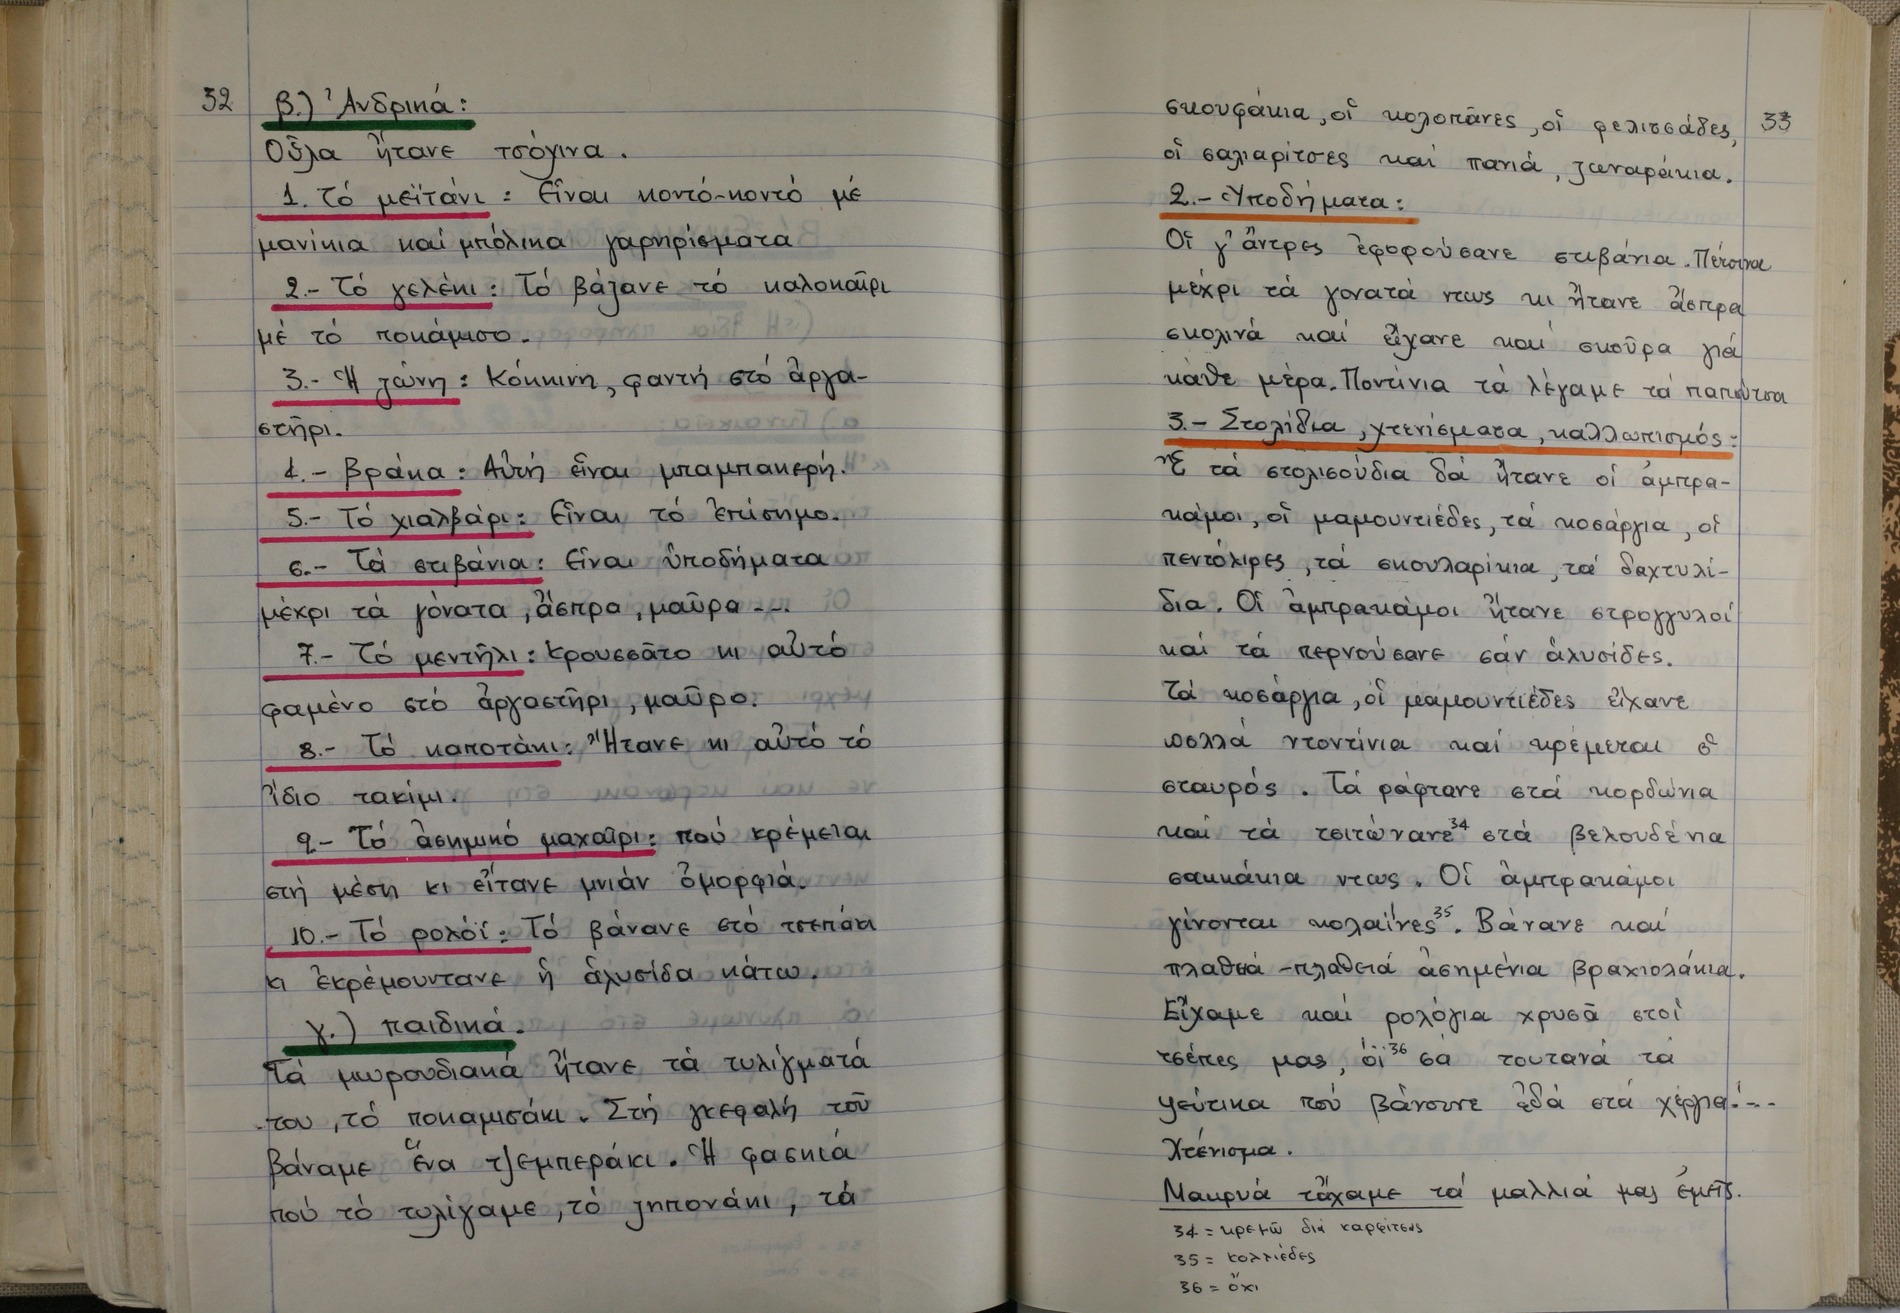 32
β.) Ἀνδρικά:
Οὗλα ἤτανε τσόχινα.
1. Τό μεϊτάνι: Εἶναι κοντό-κοντό μέ
μανίκια καί μπόλικα γαρνιρίσματα
2.- Τό γελέκι: Τό βάζανε τό καλοκαῖρι
μέ τό ποκάμισο.
3.- Ἡ ζώνη: Κόκκινη, φαντή στό ἀργα-
στῆρι.
4.- βράκα: Αὐτή εἶναι μπαμπακερή.
5.- Τό χιαλβάρι: Εἶναι τό ἐπίσημο.
6.- Τά στιβάνια: Εἶναι ὑποδήματα
μέχρι τά γόνατα, ἄσπρα, μαῦρα...
7.- Τό μεντῆλι: Κρουσσᾶτο κι αὐτό
φαμένο στό ἀργαστῆρι, μαῦρο.
8.- Τό καποτάκι: Ἤτανε κι αὐτό τό
ἴδιο τακίμι.
9.- Τό ἀσημικό μαχαῖρι: πού κρέμεται
στή μέση κι εἴτανε μνιάν ὀμορφιά.
10.- Τό ρολόϊ: Τό βάνανε στό τσεπάκι
κι ἐκρέμουντανε ἡ ἁλυσίδα κάτω.
γ.) παιδικά.
Τά μωρουδιακά ἤτανε τά τυλίγματά
του, τό ποκαμισάκι. Στή γκεφαλή τοῦ
βάναμε ἕνα τζεμπεράκι. Ἡ φασκιά
πού τό τυλίγαμε, τό ζηπονάκι, τά
33
σκουφάκια, οἱ κολοπάνες, οἱ φελιτσάδες,
οἱ σαλιαρίτσες καί πανιά, ζωναράκια.
2.- Ὑποδήματα:
Οἱ γ' ἄντρες ἐφορούσανε στιβάνια. Πέτσινα
μέχρι τά γονατά ντως κι ἤτανε ἄσπρα
σκολινά καί εἴχανε καί σκοῦρα γιά
κάθε μέρα. Ποντίνια τά λέγαμε τά παπούτσα
3.- Στολίδια, χτενίσματα, καλλωπισμός:
Ἔ τά στολισούδια δά ἤτανε οἱ ἀμπρα-
κάμοι, οἱ μαμουντιέδες, τά κοσάργια, οἱ
πεντόλιρες, τά σκουλαρίκια, τά δαχτυλί-
δια. Οἱ ἀμπρακάμοι ἤτανε στρογγυλοί
καί τά περνούσανε σάν ἁλυσίδες.
Τά κοσάργια, οἱ μαμουντιέδες εἴχανε
πολλά ντοντίνια καί κρέμεται ὁ
σταυρός. Τά ράφτανε στά κορδώνια
καί τά τσιτώνανε34 στά βελουδένια
σακκάκια ντως. Οἱ ἀμπρακάμοι
γίνονται κολαΐνες35. Βάνανε καί
πλαθειά-πλαθειά ἀσημένια βραχιολάκια.
Εἴχαμε καί ρολόγια χρυσᾶ στσί
τσέπες μας, ὄϊ36 σά τουτανά τά
ψεύτικα πού βάνουνε ἐδά στά χέργια!...
Χτένισμα.
Μακρυά τἄχαμε τά μαλλιά μας ἐμεῖς.
34 = κρεμῶ διά καρφίτσας
35 = κολλιέδες
36 = ὄχι